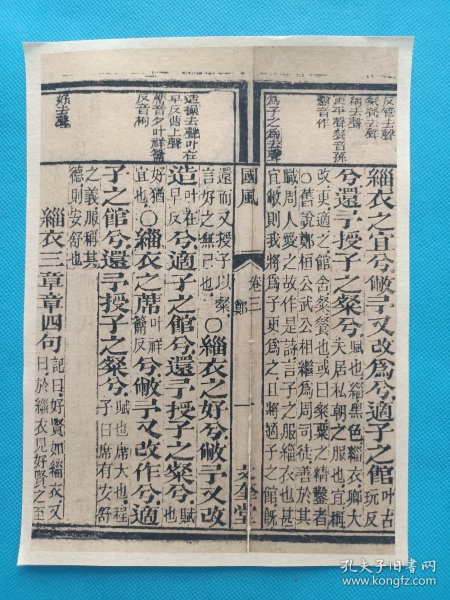 反管去聲
粲餐去聲
稱去聲
更平聲餐音孫
鑿音作
爲子之爲去聲
緇衣之宜兮敝予又改爲兮適子之館叶古玩反
兮還予授子之粲兮賦也緇黑色緇衣卿大夫居私朝之服也宜稱
改更適之館舍粲餐也或曰粲粟之精鑿者
○舊說鄭桓公武公相繼爲周司徒善於其
職周人愛之故作是詩言子之服緇衣也甚
宜敝則我將爲子更爲之且將適子之館旣
國風
卷三
鄭
一
文奎堂
造操去聲叶在
早反曹上聲
蓆音夕叶祥籥
反音朔
好去聲
還而又授子以粲○緇衣之好兮敝予又改
言好之無已也
造叶在早反兮適子之館兮還予授子之粲兮賦也
好猶宜也○緇衣之蓆叶祥籥反兮敝予又改作兮適
子之館兮還予授子之粲兮賦也蓆大也程子曰蓆有安舒
之義服稱其
德則安舒也
緇衣三章章四句記曰好賢如緇衣又曰於緇衣見好賢之至
孔夫子旧书网
www.kongfz.com